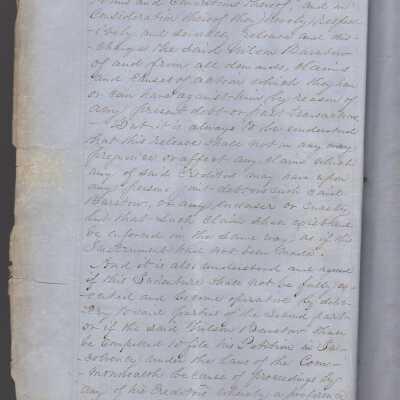 terms and conditions thereof, and in
consideration thereof they hereby respec-
tively and severally release and dis-
charge the said Wilson Barstow
of and from all demands, claims
and causes of action which they have
or can have against him by reason of
any present debt or past transaction
But it is always to be understood
that this release shall not in any way
prejudice or affect any claim which
any of said Creditors may have upon
any person joint debtors with said
Barstow, or any endorser or surety
but that such claim shall exist and
be enforced in the same way, as if this
Instrument had not been made.
And it is also understood and agreed
if this Indenture shall not be fully ex-
ecuted and become operative by deliv-
ery to said parties of the second part
or if the said Wilson Barstow shall
be compelled to file his Petition in In-
solvency under the laws of the Com-
monwealth because of proceedings by
any of his Creditors whereby a preference